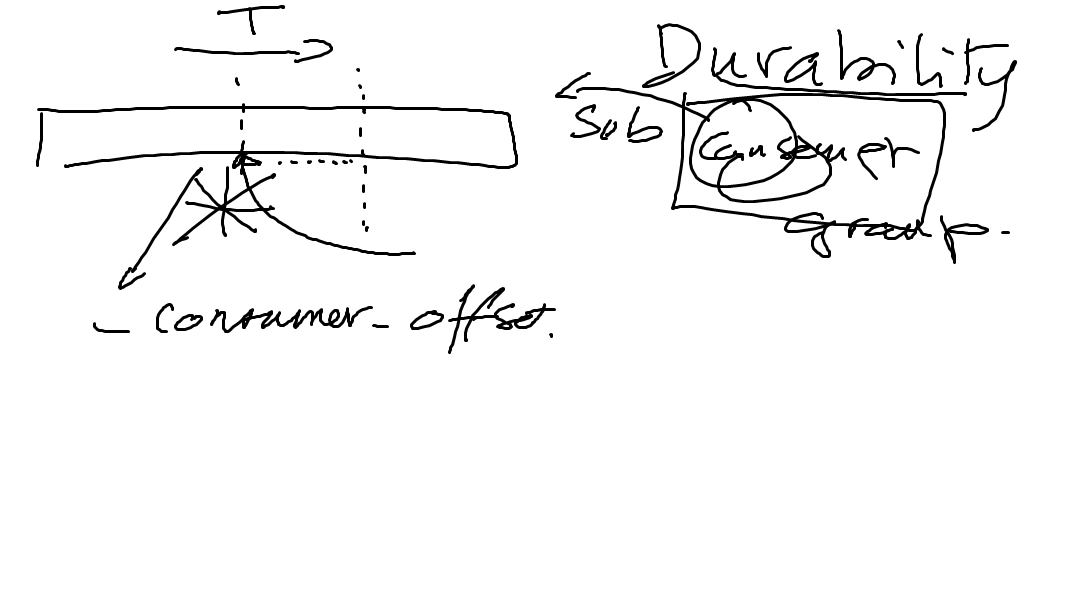 T
Durability
Sub
Consumer
group.
_ consumer_offset.